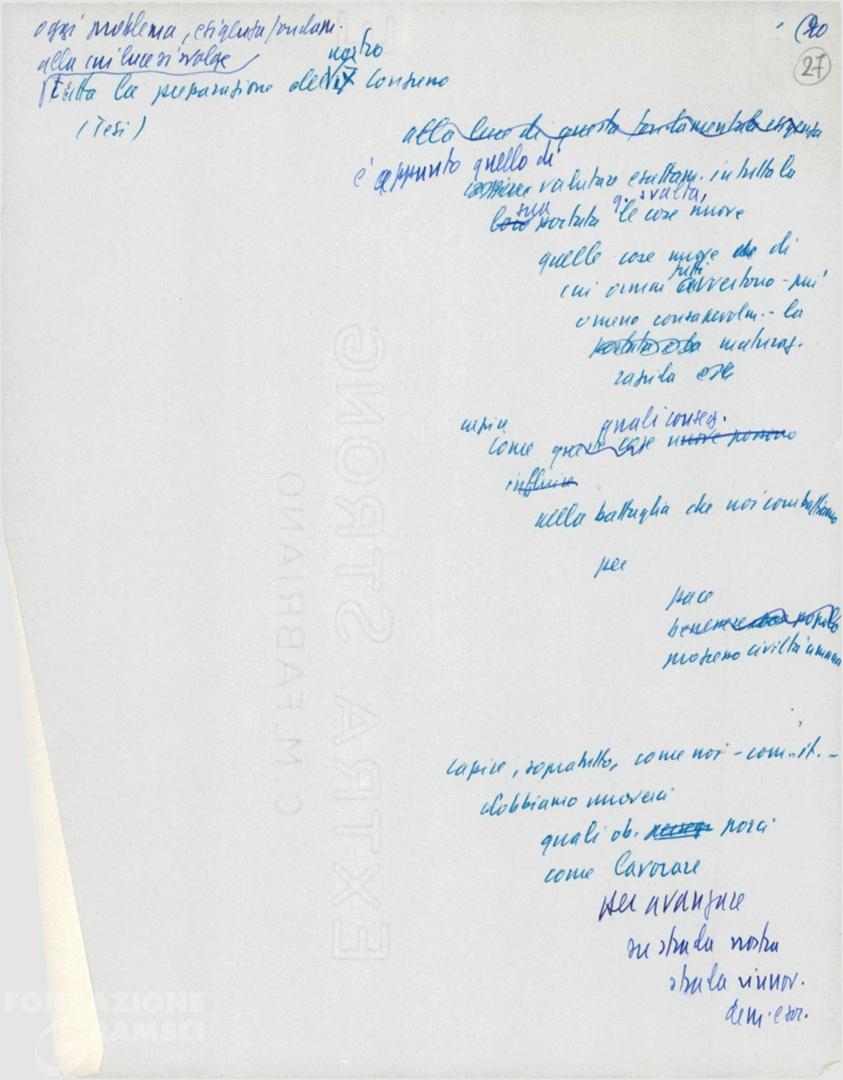 20
27
oggi problema, esigenza fondam.
alla cui luce si svolge
tutta la preparazione del nostro IX Congresso
(Tesi)
alla luce di questa fondamentale esigenza
è appunto quello di
valutare esattam. in tutta la
sua portata q. svolta,
le cose nuove
quelle cose nuove di
cui ormai tutti avvertono - più
o meno consapevolm. - la
maturaz.
rapida
capire quali conseg.
come queste cose nuove possono
influire
nella battaglia che noi combattiamo
per
pace
benessere popolo
progresso civiltà umana
capire, sopratutto, come noi - com. it. -
dobbiamo muoverci
quali ob. porci
come lavorare
per avanzare
su strada nostra
strada rinnov.
dem. e soc.
C. M. FABRIANO
EXTRA STRONG
FONDAZIONE
GRAMSCI